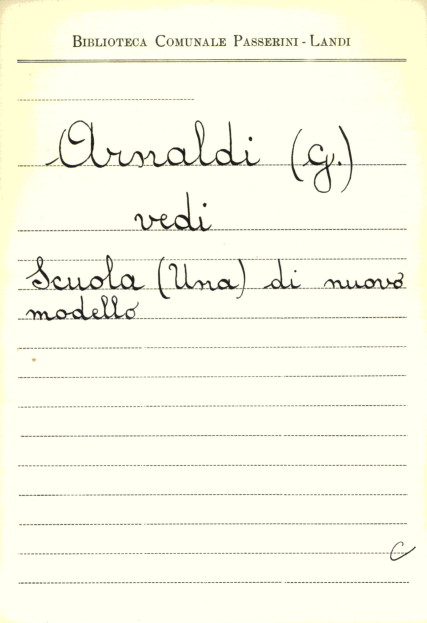 BIBLIOTECA COMUNALE PASSERINI - LANDI
Arnaldi (G.)
vedi
Scuola (Una) di nuovo
modello
C